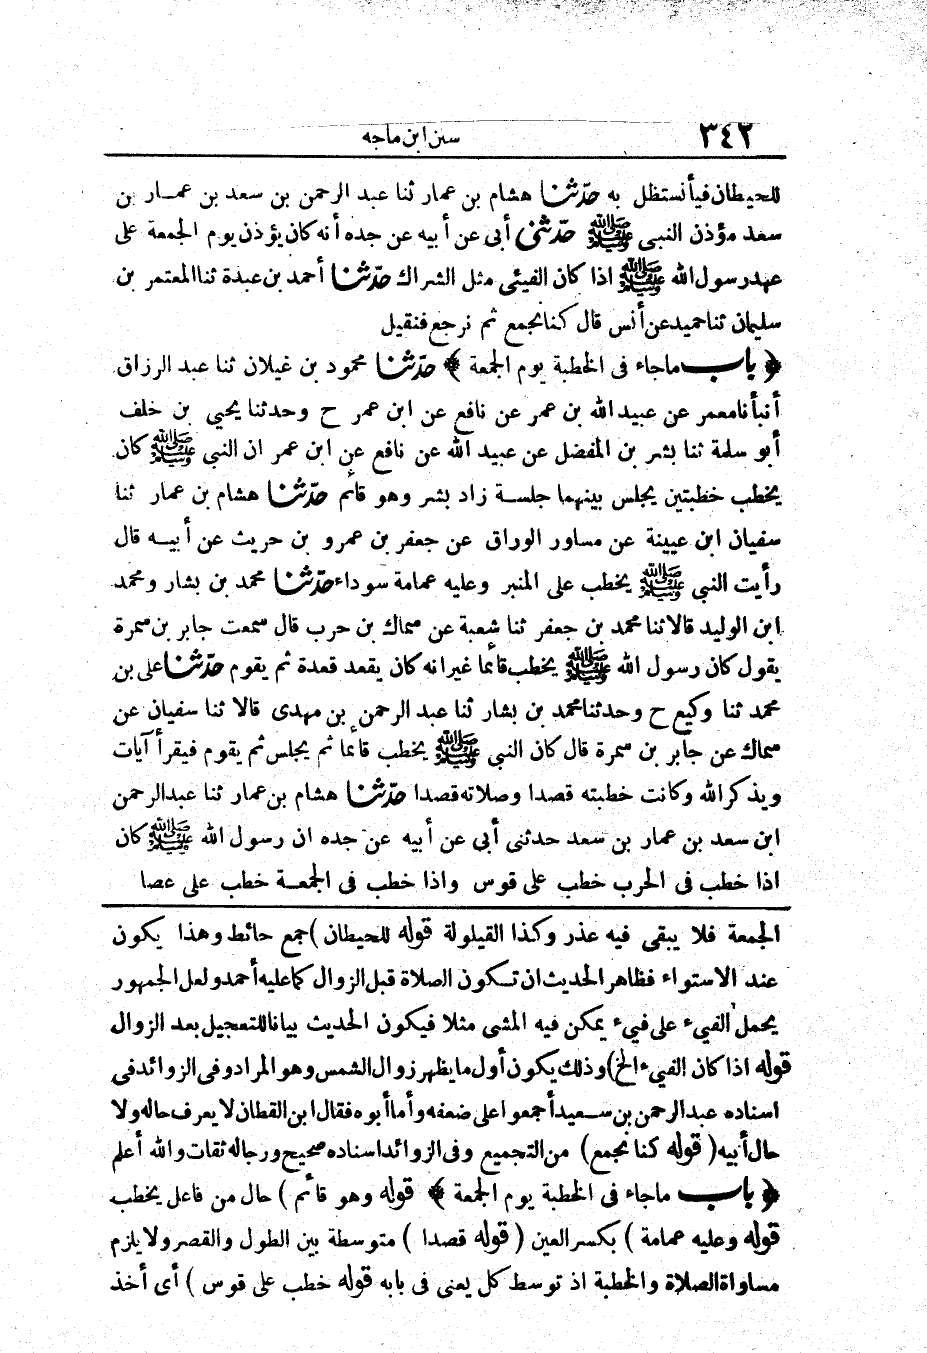 ٣٤٢
سنن ابن ماجه
للحيطان فيأ نستظل به حدّثنا هشام بن عمار ثنا عبد الرحمن بن سعد بن عمار بن
سعد مؤذن النبى ﷺ حدّثنى أبى عن أبيه عن جده أنه كان يؤذن يوم الجمعة على
عهد رسول الله ﷺ اذا كان الفيئى مثل الشراك حدّثنا أحمد بن عبدة ثنا المعتمر بن
سليمان ثنا حميد عن أنس قال كنا نجمع ثم نرجع فنقيل
﴿ باب ماجاء فى الخطبة يوم الجمعة ﴾ حدّثنا محمود بن غيلان ثنا عبد الرزاق
أنبأنا معمر عن عبيد الله بن عمر عن نافع عن ابن عمر ح وحدثنا يحيى بن خلف
أبو سلمة ثنا بشر بن المفضل عن عبيد الله عن نافع عن ابن عمر ان النبى ﷺ كان
يخطب خطبتين يجلس بينهما جلسة زاد بشر وهو قائم حدّثنا هشام بن عمار ثنا
سفيان ابن عيينة عن مساور الوراق عن جعفر بن عمرو بن حريث عن أبيه قال
رأيت النبى ﷺ يخطب على المنبر وعليه عمامة سوداء حدّثنا محمد بن بشار ومحمد
ابن الوليد قالا ثنا محمد بن جعفر ثنا شعبة عن سماك بن حرب قال سمعت جابر بن سمرة
يقول كان رسول الله ﷺ يخطب قائما غير انه كان يقعد قعدة ثم يقوم حدّثنا على بن
محمد ثنا وكيع ح وحدثنا محمد بن بشار ثنا عبد الرحمن بن مهدى قالا ثنا سفيان عن
سماك عن جابر بن سمرة قال كان النبى ﷺ يخطب قائما ثم يجلس ثم يقوم فيقرأ آيات
ويذكر الله وكانت خطبته قصدا وصلاته قصدا حدّثنا هشام بن عمار ثنا عبد الرحمن
ابن سعد بن عمار بن سعد حدثنى أبى عن أبيه عن جده ان رسول الله ﷺ كان
اذا خطب فى الحرب خطب على قوس واذا خطب فى الجمعة خطب على عصا
الجمعة فلا يبقى فيه عذر وكذا القيلولة قوله للحيطان ) جمع حائط وهذا يكون
عند الاستواء فظاهر الحديث ان تكون الصلاة قبل الزوال كما عليه أحمد ولعل الجمهور
يحمل الفيىء على فيىء يمكن فيه المشى مثلا فيكون الحديث بيانا للتعجيل بعد الزوال
قوله اذا كان الفيىء الخ) وذلك يكون أول ما يظهر زوال الشمس وهو المراد وفى الزوائد فى
اسناده عبد الرحمن بن سعيد أجمعوا على ضعفه وأما أبوه فقال ابن القطان لا يعرف حاله ولا
حال أبيه ( قوله كنا نجمع ) من التجميع وفى الزوائد اسناده صحيح ورجاله ثقات والله أعلم
﴿ باب ماجاء فى الخطبة يوم الجمعة ﴾ قوله وهو قائم ) حال من فاعل يخطب
قوله وعليه عمامة ) بكسر العين ( قوله قصدا ) متوسطة بين الطول والقصر ولا يلزم
مساواة الصلاة والخطبة اذ توسط كل يعنى فى بابه قوله خطب على قوس ) أى أخذ